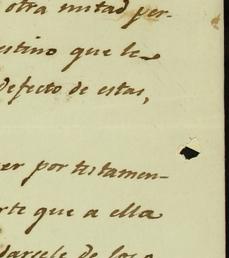 otra mitad per-
estino que le
defecto de estas,
er por testamen-
rte que a ella
darsele de los